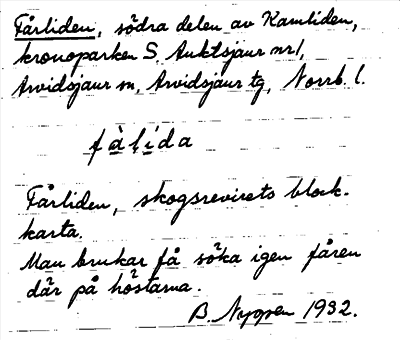 Fårliden, södra delen av Kamliden,
kronoparken S. Auktsjaur nr 1,
Arvidsjaur sn, Arvidsjaur tg, Norrb. l.
fàlịda
Fårliden, skogsrevirets block-
karta.
Man brukar få söka igen fåren
där på höstarna.
B. Nygren 1932.